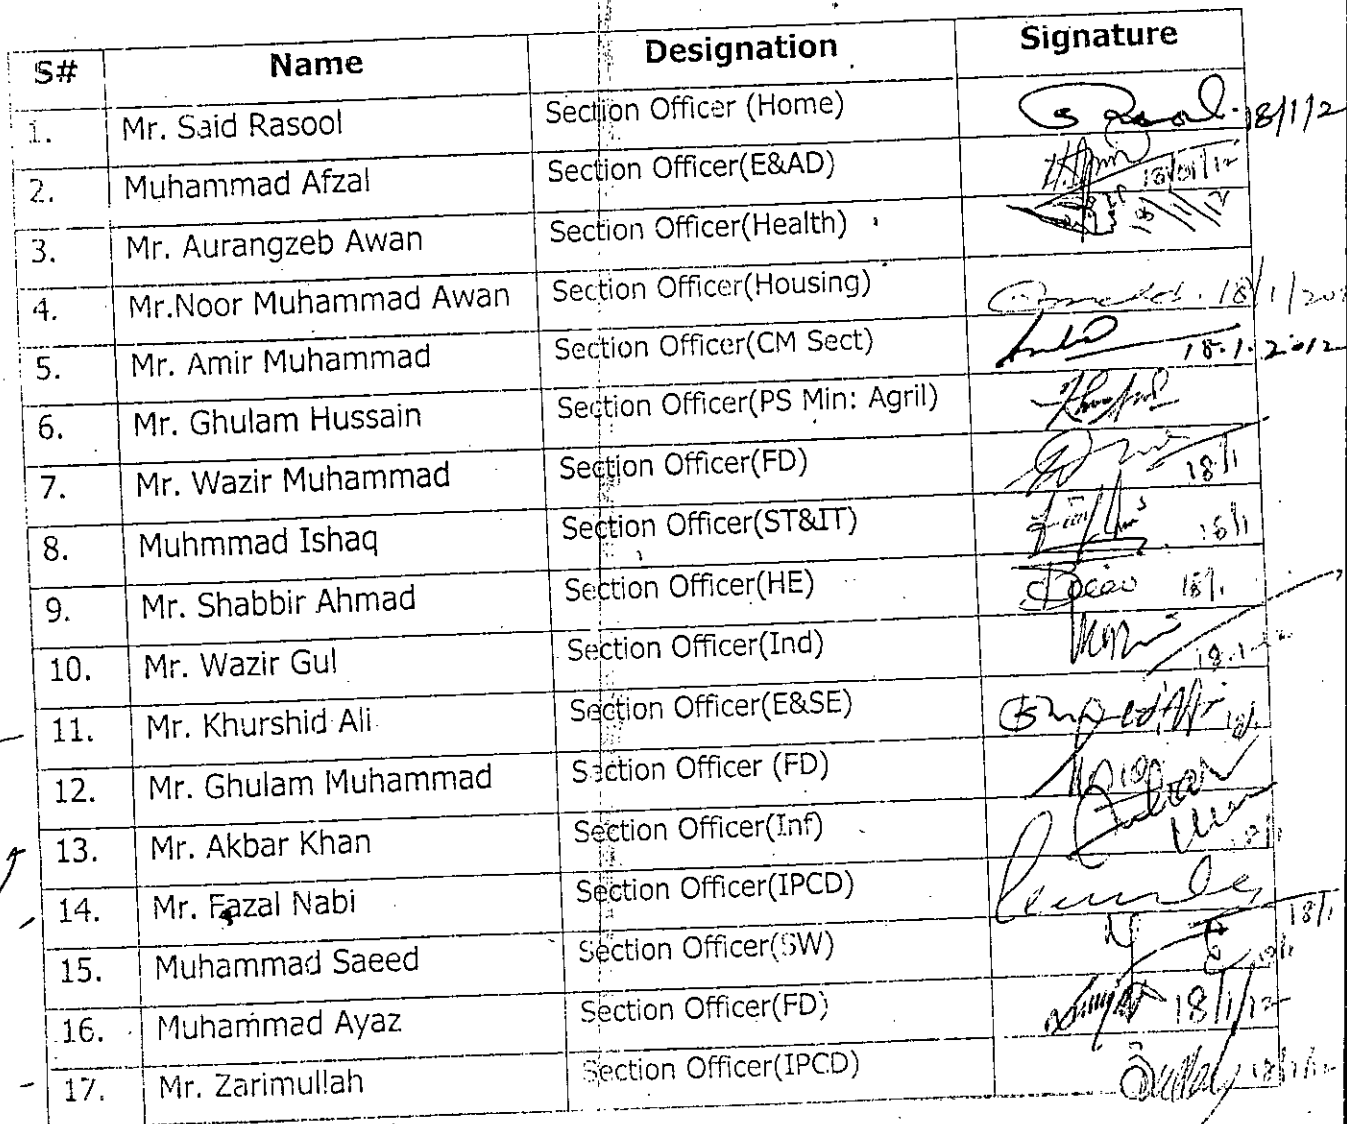 S# Name Designation Signature
1. Mr. Said Rasool Section Officer (Home) Rasool. 18/1/2
2. Muhammad Afzal Section Officer(E&AD) 18/01/12
3. Mr. Aurangzeb Awan Section Officer(Health) 18/1/12
4. Mr.Noor Muhammad Awan Section Officer(Housing) 18/1/20
5. Mr. Amir Muhammad Section Officer(CM Sect) 18.1.2012
6. Mr. Ghulam Hussain Section Officer(PS Min: Agril)
7. Mr. Wazir Muhammad Section Officer(FD) 18/1
8. Muhmmad Ishaq Section Officer(ST&IT) 18/1
9. Mr. Shabbir Ahmad Section Officer(HE) 18/1
10. Mr. Wazir Gul Section Officer(Ind) 18.1.12
11. Mr. Khurshid Ali Section Officer(E&SE) 18/1
12. Mr. Ghulam Muhammad Section Officer (FD)
13. Mr. Akbar Khan Section Officer(Inf) 18/1
14. Mr. Fazal Nabi Section Officer(IPCD) 18/1
15. Muhammad Saeed Section Officer(SW)
16. Muhammad Ayaz Section Officer(FD) 18/1/12
17. Mr. Zarimullah Section Officer(IPCD) 18/1/12